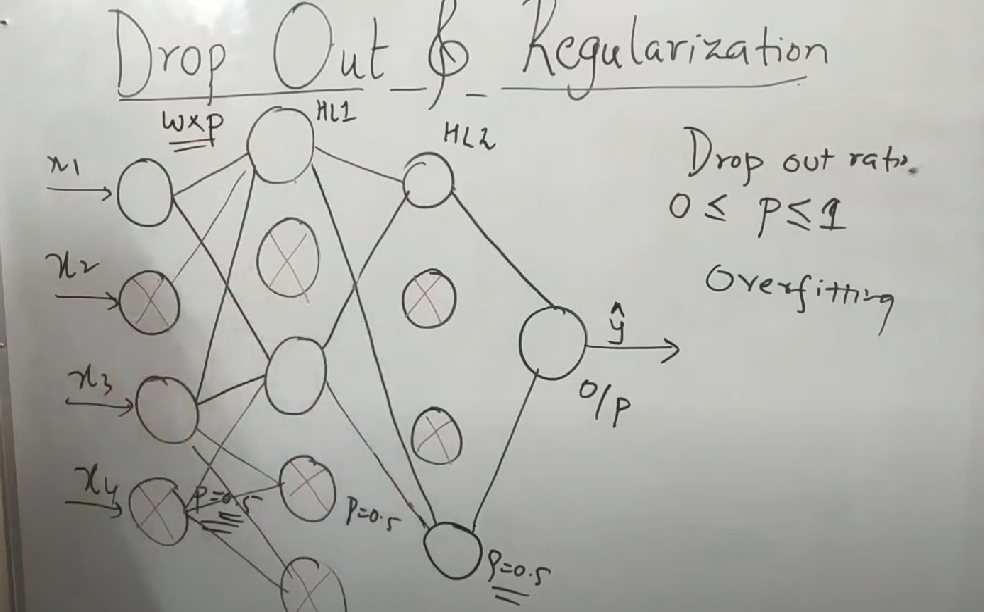 Drop Out & Regularization
W×P
HL1
HL2
x1
x2
x3
x4
P=0.5
P=0.5
P=0.5
ŷ
O/P
Drop out ratio
0 ≤ P ≤ 1
Overfitting